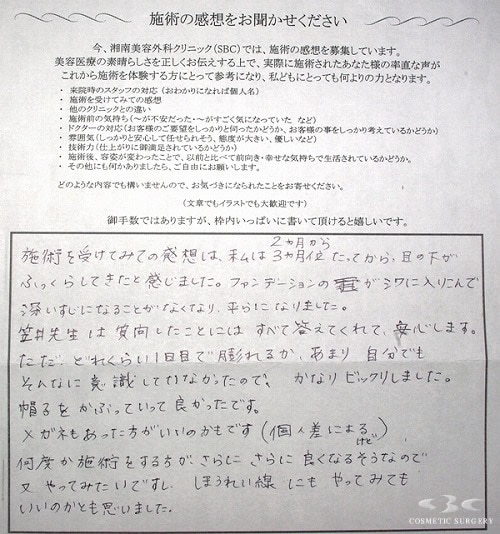 施術の感想をお聞かせください
今、湘南美容外科クリニック(SBC)では、施術の感想を募集しています。
美容医療の素晴らしさを正しくお伝えする上で、実際に施術されたあなた様の率直な声が
これから施術を体験する方にとって参考になり、私どもにとっても何よりの力となります。
・ 来院時のスタッフの対応(おわかりになれば個人名)
・ 施術を受けてみての感想
・ 他のクリニックとの違い
・ 施術前の気持ち(~が不安だった・~がすごく気になっていた など)
・ ドクターの対応(お客様のご要望をしっかりと伺ったかどうか、お客様の事をしっかり考えているかどうか)
・ 雰囲気(しっかりと安心して任せられそう、態度が大きい、優しいなど)
・ 技術力(仕上がりに御満足されているかどうか)
・ 施術後、容姿が変わったことで、以前と比べて前向き・幸せな気持ちで生活されているかどうか。
・ その他にも何かありましたら、ご自由にお願いします。
どのような内容でも構いませんので、お気づきになられたことをお寄せください。
(文章でもイラストでも大歓迎です)
御手数ではありますが、枠内いっぱいに書いて頂けると嬉しいです。
2カ月から
施術を受けてみての感想は、私は3カ月位たってから、目の下が
ふっくらしてきたと感じました。ファンデーションのがシワに入りこんで
深いすじになることがなくなり、平らになりました。
笠井先生は質問したことにはすべて答えてくれて、安心します。
ただ、どれくらい1日目で膨れるか、あまり自分でも
そんなに意識してなかったので、かなりビックリしました。
帽子をかぶっていって良かったです。
メガネもあった方がいいのかもです(個人差によるけど)
何度か施術をする方が、さらにさらに良くなるそうなので
又やってみたいですし、ほうれい線にもやってみても
いいのかとも思いました。
SBC
COSMETIC SURGERY